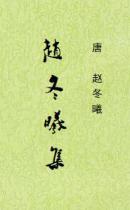 唐 赵冬曦
趙冬曦集